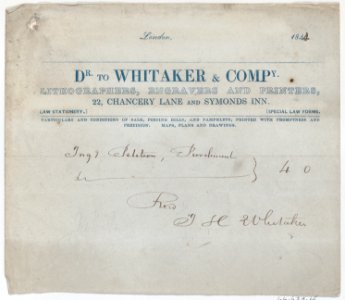 London, 184
Dr. TO WHITAKER & COMPY.
LITHOGRAPHERS, ENGRAVERS AND PRINTERS,
22, CHANCERY LANE AND SYMONDS INN.
LAW STATIONERY. SPECIAL LAW FORMS.
PARTICULARS AND CONDITIONS OF SALE, POSTING BILLS, AND PAMPHLETS, PRINTED WITH PROMPTNESS AND
PRECISION. MAPS, PLANS AND DRAWINGS.
Ing? Petition, Parchment
} 4 0
J H Whitaker